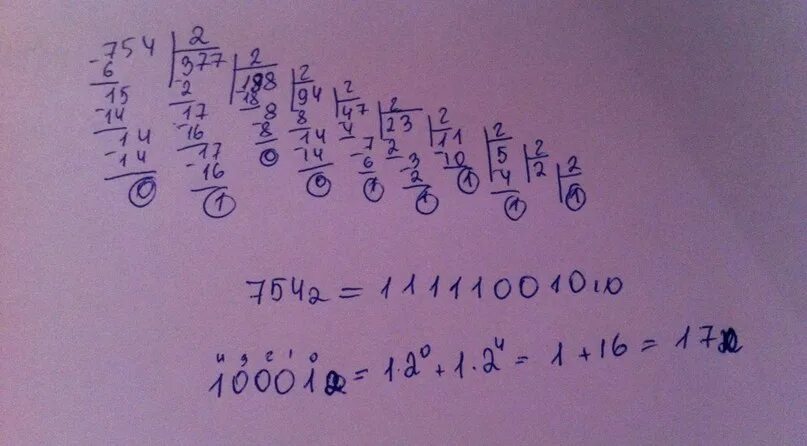 -754 | 2
6 377 | 2
15 -2 188 | 2
-14 17 -18 94 | 2
14 -16 8 8 47 | 2
-14 17 -8 14 -4 23 | 2
0 -16 0 -14 7 -2 11 | 2
1 0 -6 3 -10 5 | 2
1 -2 1 4 2 | 2
1 1 1
754₂ = 1111100101₁₀
4 3 2 1 0
10001₂ = 1·2⁰ + 1·2⁴ = 1 + 16 = 17